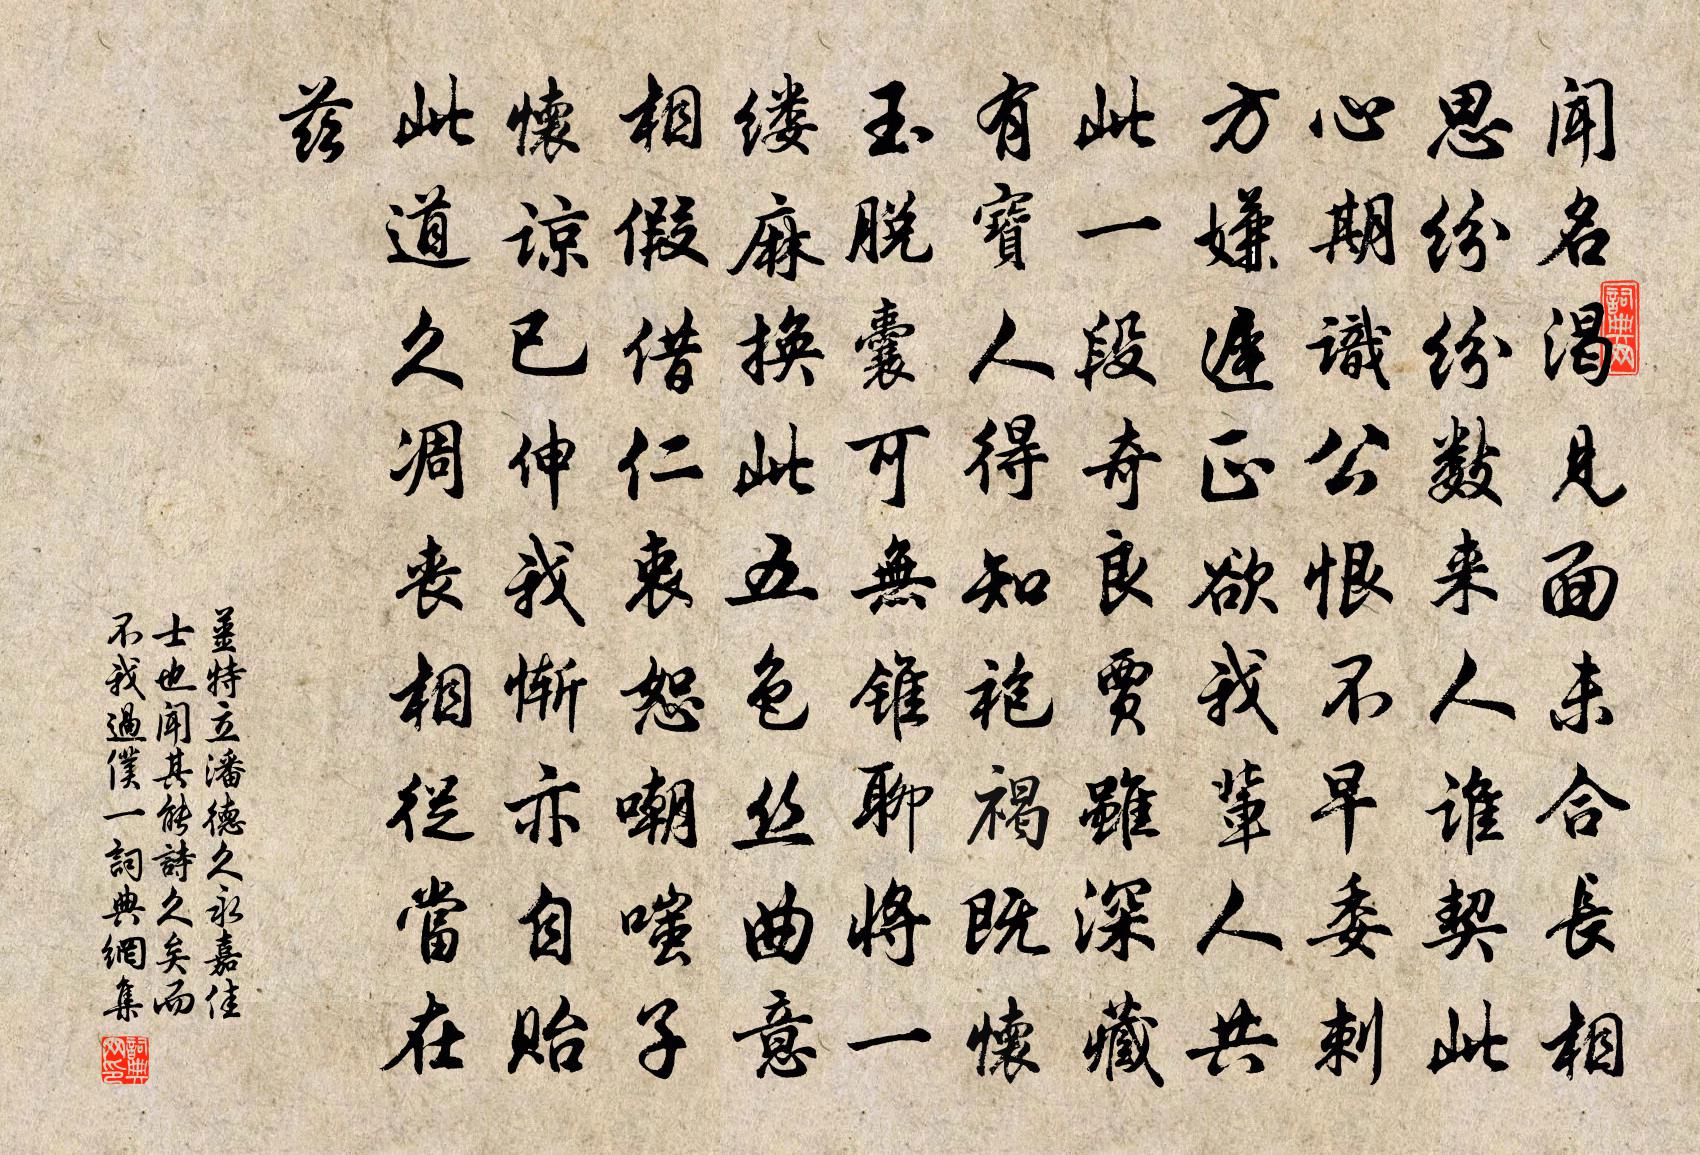 闻名渴见面未合長相
思纷纷数来人谁契此
心期識公恨不早委刺
方嫌遲正欲我輩人共
此一段奇良賈雖深藏
有寶人得知袍褐既懷
玉脱囊可無錐聊将一
缕麻換此五色丝曲意
相假借仁衷恕嘲嗤子
懷谅已伸我惭亦自貽
此道久凋丧相從當在
兹
姜特立潘德久永嘉佳
士也闻其能詩久矣而
不我過僕一詞典網集